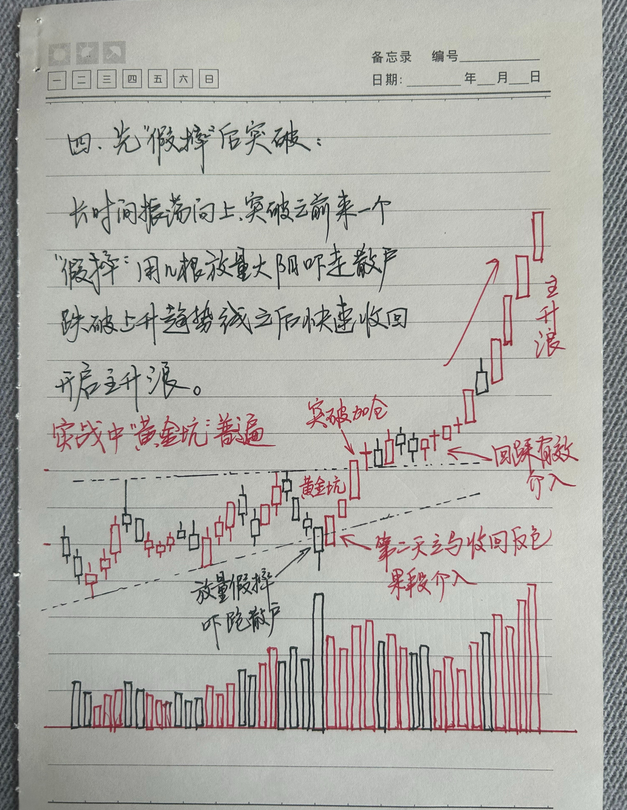 备忘录 编号
一 二 三 四 五 六 日
日期: 年 月 日
四、先"假摔"后突破:
长时间振荡向上,突破之前来一个
"假摔"用几根放量大阴吓走散户
跌破上升趋势线之后快速收回
开启主升浪。
实战中"黄金坑"普遍
突破加仓
主升浪
回踩有效
介入
黄金坑
第二天立马收回反包
果断介入
放量假摔
吓跑散户